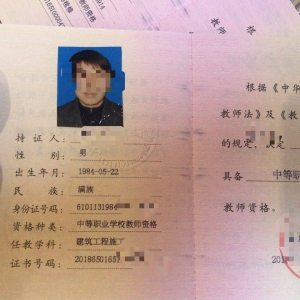 持 证 人：
性　　别： 男
出生年月： 1984-05-22
民　　族： 满族
身份证号码： 6101131984
资格种类： 中等职业学校教师资格
任教学科： 建筑工程施工
证书号码： 20186501653
根据《中华
教师法》及《教
的规定，决定
具备 中等职
教师资格。
201